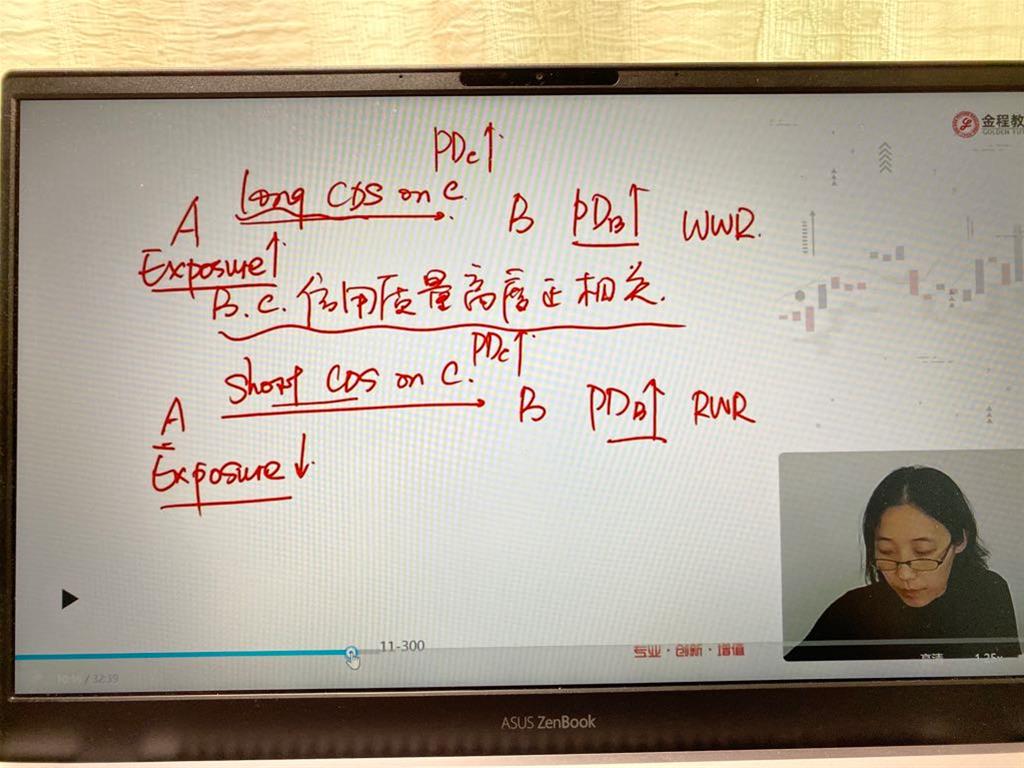 PDc↑
金程教
GOLDEN TU
A long CDS on C. B PDB↑ WWR.
Exposure↑
B.C.信用质量高度正相关.
PDc↑
A short CDS on C. B PDB↑ RWR
Exposure↓
11-300
专业·创新·增值
高清 1.25x
/ 32:39
ASUS ZenBook